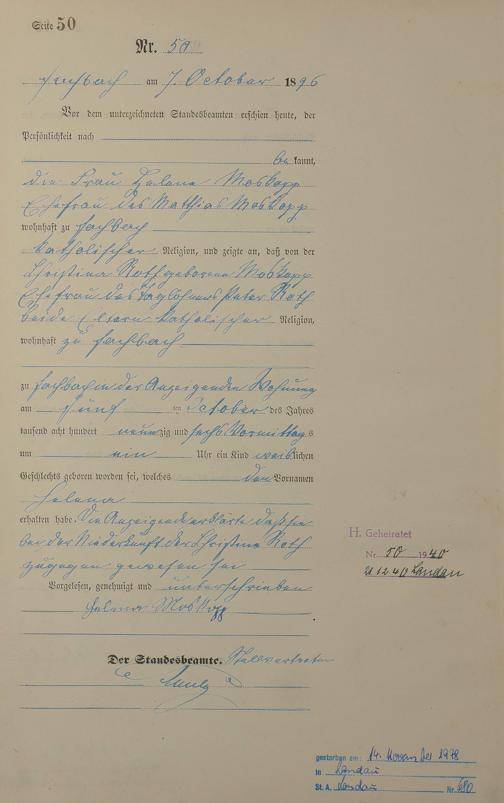 Seite 50
Nr. 50
Fachbach am 7. October 1896
Vor dem unterzeichneten Standesbeamten erschien heute, der
Persönlichkeit nach
be kannt,
die Frau Helena Moskopp
Ehefrau des Mathias Moskopp
wohnhaft zu Fachbach
katholischer Religion, und zeigte an, daß von der
Christina Roth geborenen Moskopp
Ehefrau des Taglöhners Peter Roth
beide Eltern katholischer Religion,
wohnhaft zu Fachbach
zu Fachbach in der Anzeigenden Wohnung
am fünf ten October des Jahres
tausend acht hundert neunzig und sechs Vormittags
um ein Uhr ein Kind weiblichen
Geschlechts geboren worden sei, welches den Vornamen
Helena
erhalten habe. Die Anzeigende erklärte daß sie
bei der Niederkunft der Christina Roth
zugegen gewesen sei
Vorgelesen, genehmigt und unterschrieben
Helena Moskopp
Der Standesbeamte. Stellvertreter
H. Geheiratet
Nr. 50 1940
Landau
gestorben am: 14. November 1978
in Landau
St. A. Landau Nr. 680